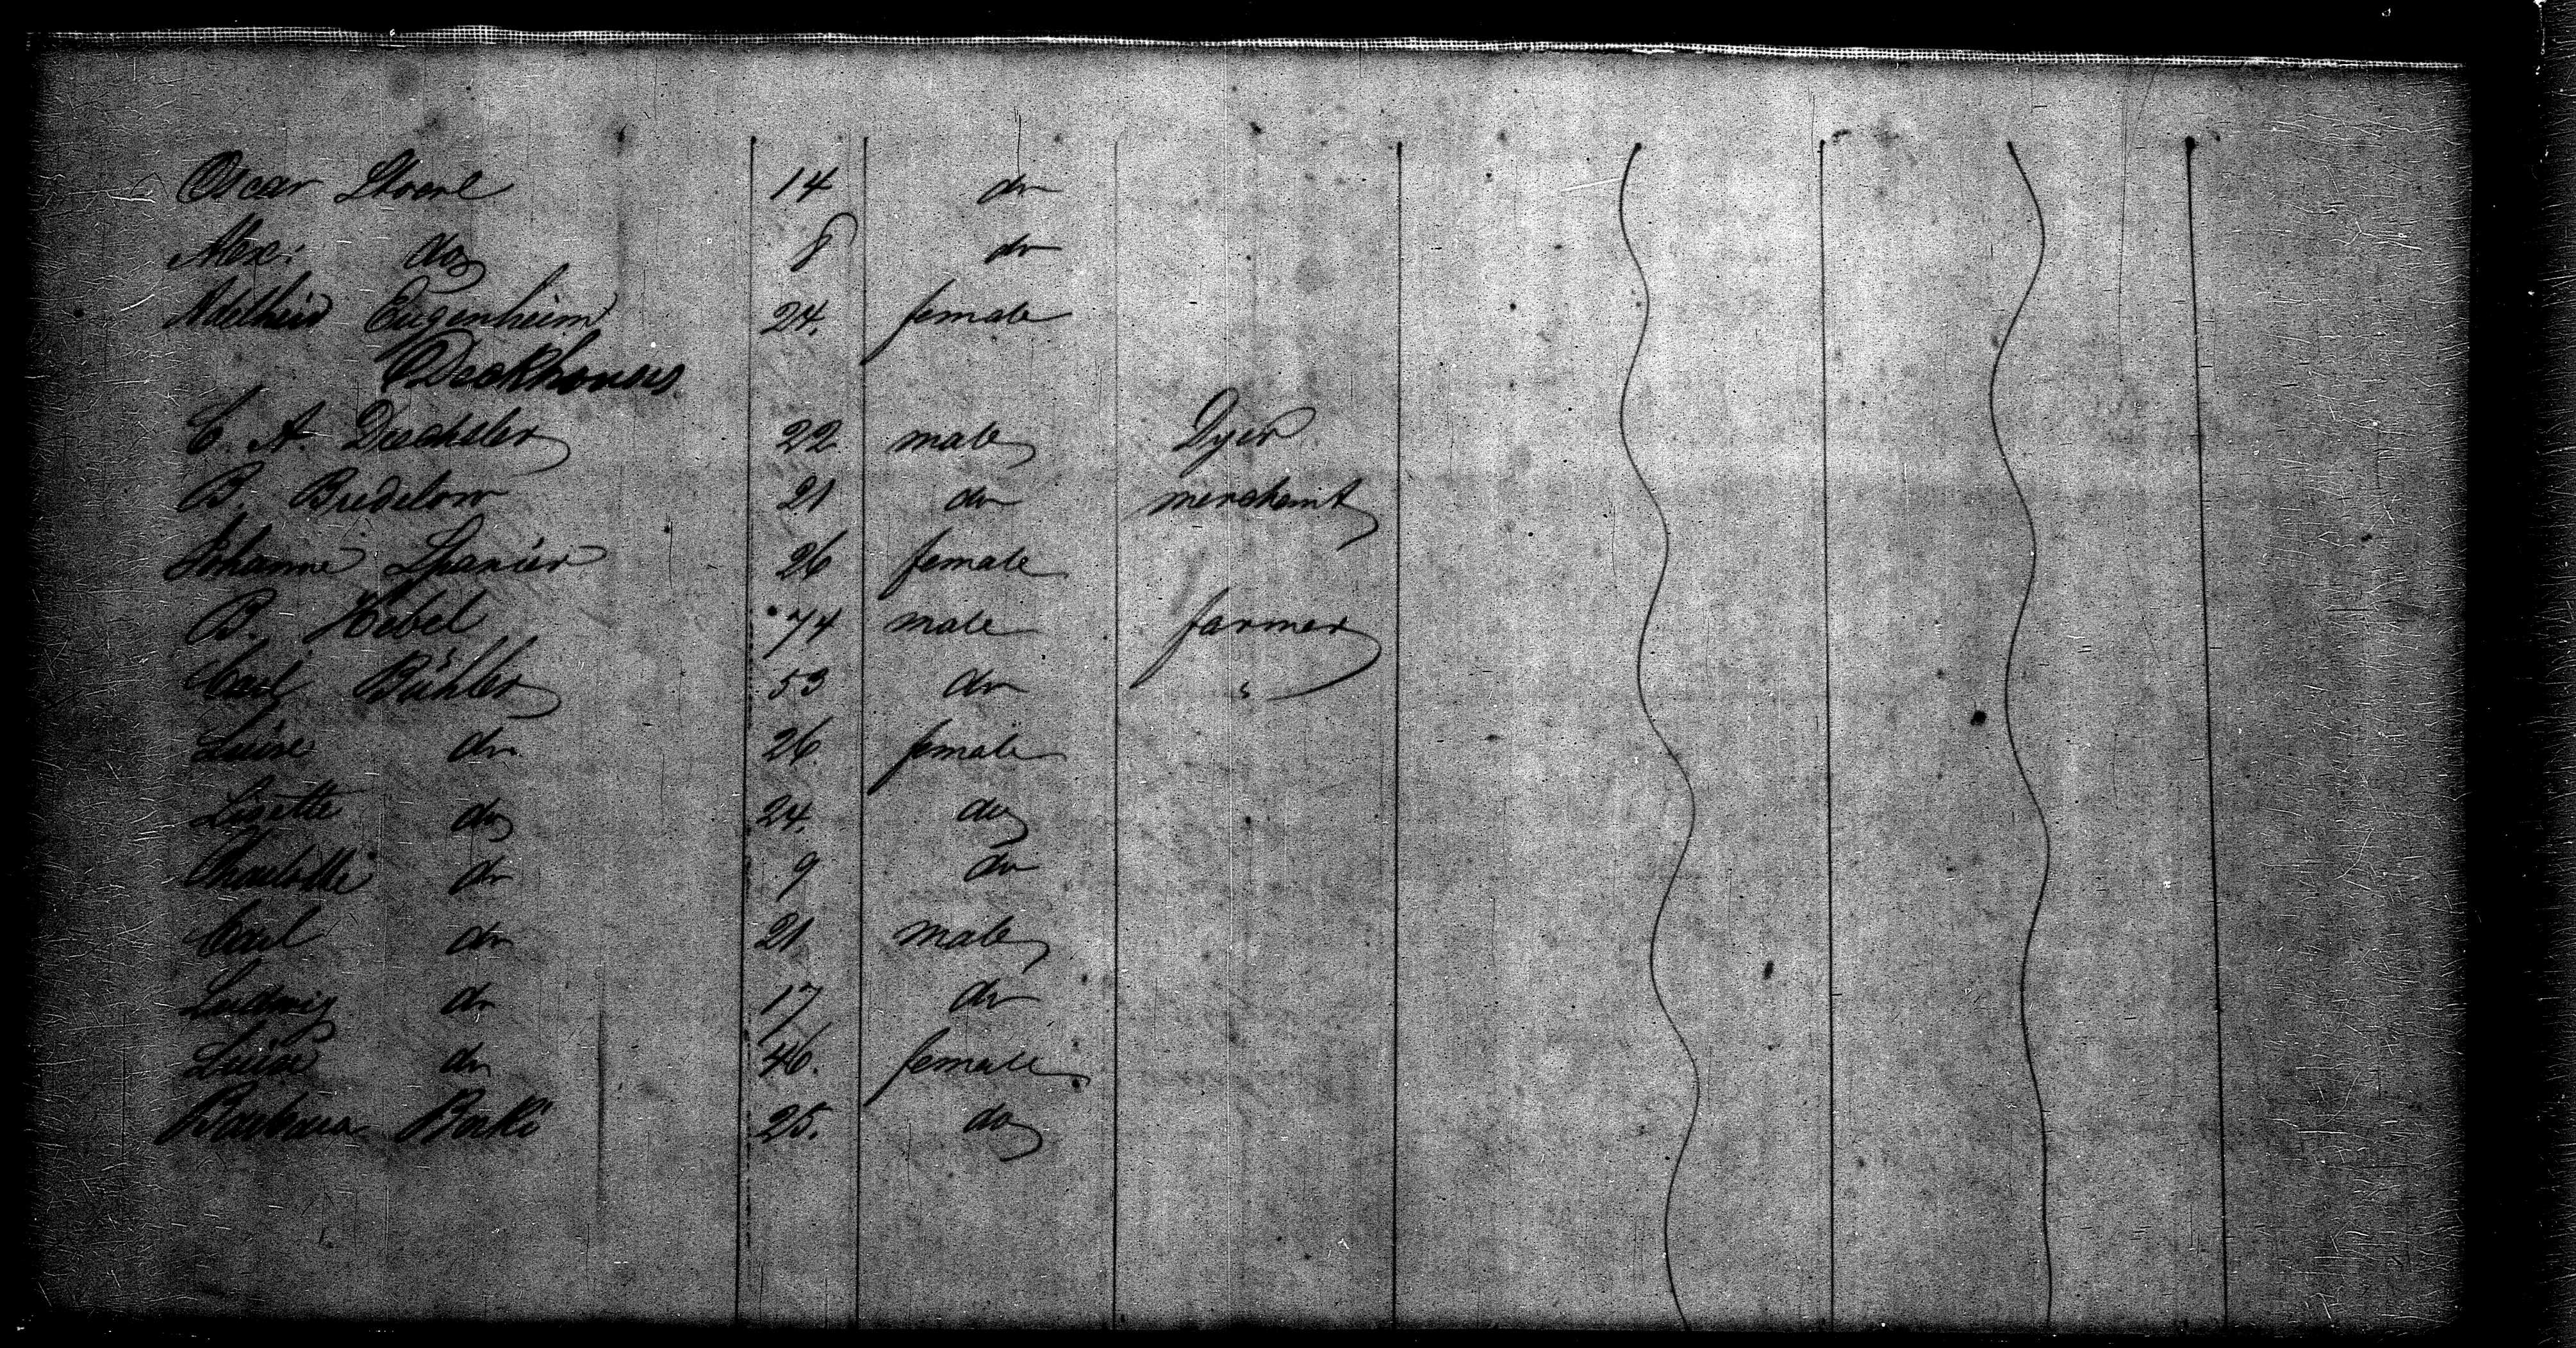 Oscar 14 do
Alex. do 8 do
Adelheid Eugenheim 24. female
Deckhouse
C. A. Drechsler 22 male Dyer
B. Bredelow 21 do merchant
Johanne Spanier 26 female
B. Hebel 74 male farmer
Carl Bühler 53 do "
Luise do 26 female
Lisette do 24. do
Charlotte do 9 do
Carl do 21 male
Ludwig do 17 do
Luise do 46. female
Barbara 25. do